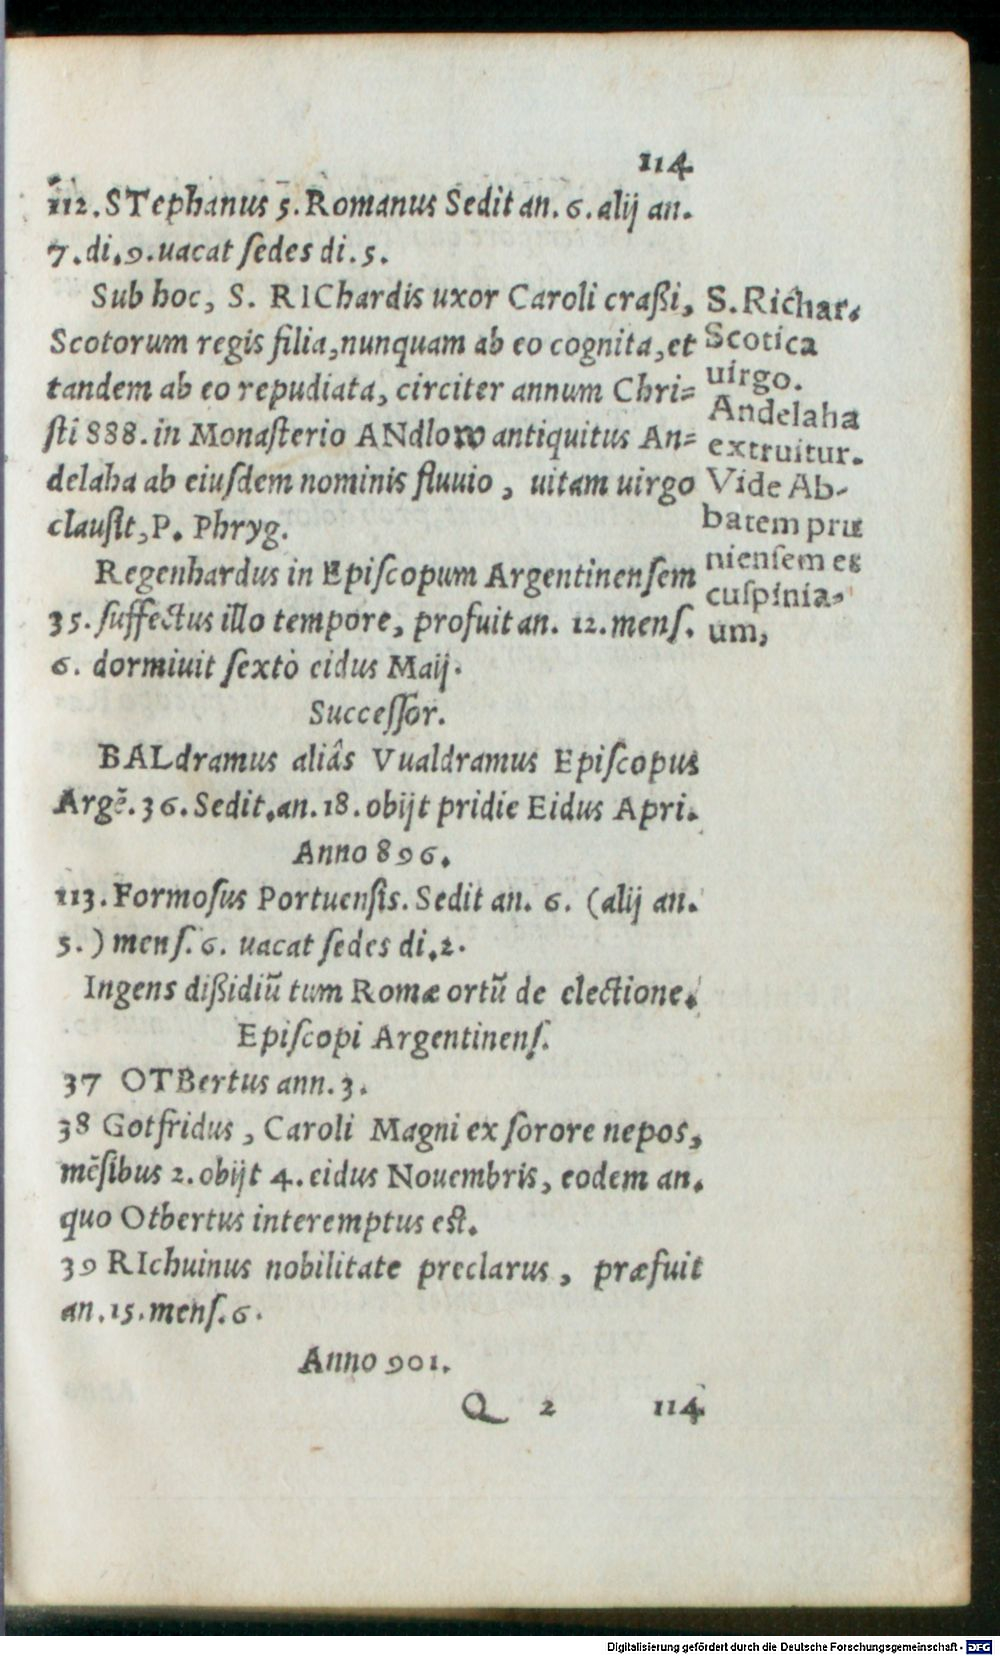 114
112. STephanus 5. Romanus Sedit an. 6. alij an.
7. di. 9. uacat ſedes di. 5.
Sub hoc, S. RIChardis uxor Caroli craßi,
Scotorum regis filia, nunquam ab eo cognita, et
tandem ab eo repudiata, circiter annum Chri=
ſti 888. in Monaſterio ANdlow antiquitus An=
delaha ab eiuſdem nominis fluuio, uitam uirgo
clauſit, P. Phryg.
Regenhardus in Epiſcopum Argentinenſem
35. ſuffectus illo tempore, profuit an. 12. menſ.
6. dormiuit ſexto eidus Maij.
Succeſſor.
BALdramus aliâs Vualdramus Epiſcopus
Argẽ. 36. Sedit. an. 18. obijt pridie Eidus Apri.
Anno 896.
113. Formoſus Portuenſis. Sedit an. 6. (alij an.
5.) menſ. 6. uacat ſedes di. 2.
Ingens dißidiũ tum Romæ ortũ de electione.
Epiſcopi Argentinenſ.
37 OTBertus ann. 3.
38 Gotfridus, Caroli Magni ex ſorore nepos,
mẽſibus 2. obijt 4. eidus Nouembris, eodem an.
quo Otbertus interemptus eſt.
39 RIchuinus nobilitate preclarus, præfuit
an. 15. menſ. 6.
Anno 901.
Q 2 114
S. Richar.
Scotica
uirgo.
Andelaha
extruitur.
Vide Ab-
batem pru
nienſem et
cuſpinia-
um,
Digitalisierung gefördert durch die Deutsche Forschungsgemeinschaft - DFG